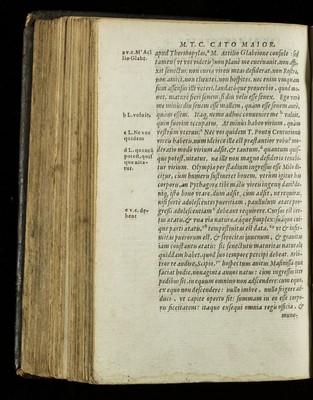 M. T. C. CATO MAIOR.
apud Thermopylas, M. Attilio Glabrione consule: sed
tamen ut vos videtis non plane me enervavit, non affli-
xit senectus: non curia vires meas desiderat, non Rostra,
non amici, non clientes, non hospites. nec enim umquam
sum assensus illi veteri, laudatóque proverbio, quod mo-
net, mature fieri senem, si diu velis esse senex. Ego verò
me minus diu senem esse mallem, quàm esse senem antè,
quàm essem. Itaq; nemo adhuc convenire me voluit,
quin fuerim occupatus. At minus habeo virium, quàm
vestrûm utervis: Nec vos quidem T. Pontij Centurionis
vires habetis, num idcirco ille est præstantior vobis? mo-
deratio modo virium adsit, & tantum, quantum quis-
que potest, nitatur. næ ille non magno desiderio tenebi-
tur virium. Olympiæ per stadium ingressus esse Milo di-
citur, cùm humeris sustineret bovem. utrùm igitur has
corporis, an Pythagoræ tibi malis vires ingenij dari? de-
niq; isto bono utare, dum adsit, cùm absit, ne requiras,
nisi fortè adolescentes pueritiam, paululum ætate pro-
gressi adolescentiam debeant requirere. Cursus est cer-
tus ætatis, & una via naturæ, eáque simplex: suáque cui-
que parti ætatis tempestivitas est data, ut & infir-
mitas puerorum est, & ferocitas iuvenum, & gravitas
iam constantis ætatis: sic senectutis maturitas naturale
quiddam habet, quod suo tempore percipi debeat. Arbi-
tror te audire, Scipio, hospes tuus avitus Masinissa quæ
faciat hodie, nonaginta annos natus: cùm ingressus iter
pedibus sit, in equum omnino non adscendere: cùm equo,
ex equo non descendere: nullo imbre, nullo frigore ad-
duci, ut capite operto sit: summam in eo esse corpo-
ris siccitatem: itaque exsequi omnia regis officia, &
mune-
a v.c. M' Aci
lio Glabr.
b L. voluit,
c L. Ne vos
quidem
d L. quantū
potest, quisq;
e v.c. de-
bent